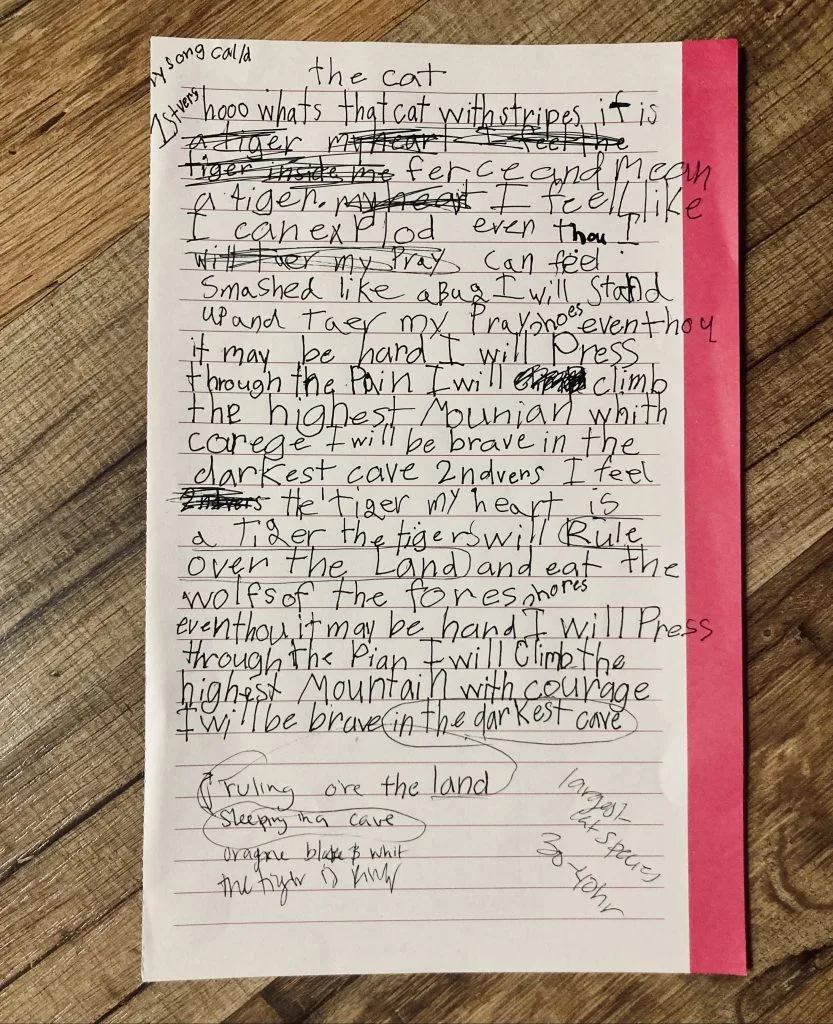 my song calld
the cat
1st vers
hooo whats that cat with stripes it is
a tiger my heart I feel the
tiger inside me ferce and Mean
a tiger. my heart I feel like
I can explod even thou I
will taer my Pray can feel
Smashed like a Bug I will stand
up and Taer my Pray shoes even thou
it may be hard I will Press
through the Pain I will climb
the highest Mounian whith
corege I will be brave in the
darkest cave 2nd vers I feel
2nd vers the tiger my heart is
a Tiger the tigers will Rule
over the Land and eat the
wolfs of the fores shores
eventhou it may be hand I will Press
through the Pian I will Climb the
highest Mountain with courage
I will be brave in the darkest cave
ruling ore the land
Sleeping in a cave
oragne blake & whit
the tigher is King
largest
cat species
30-40hr